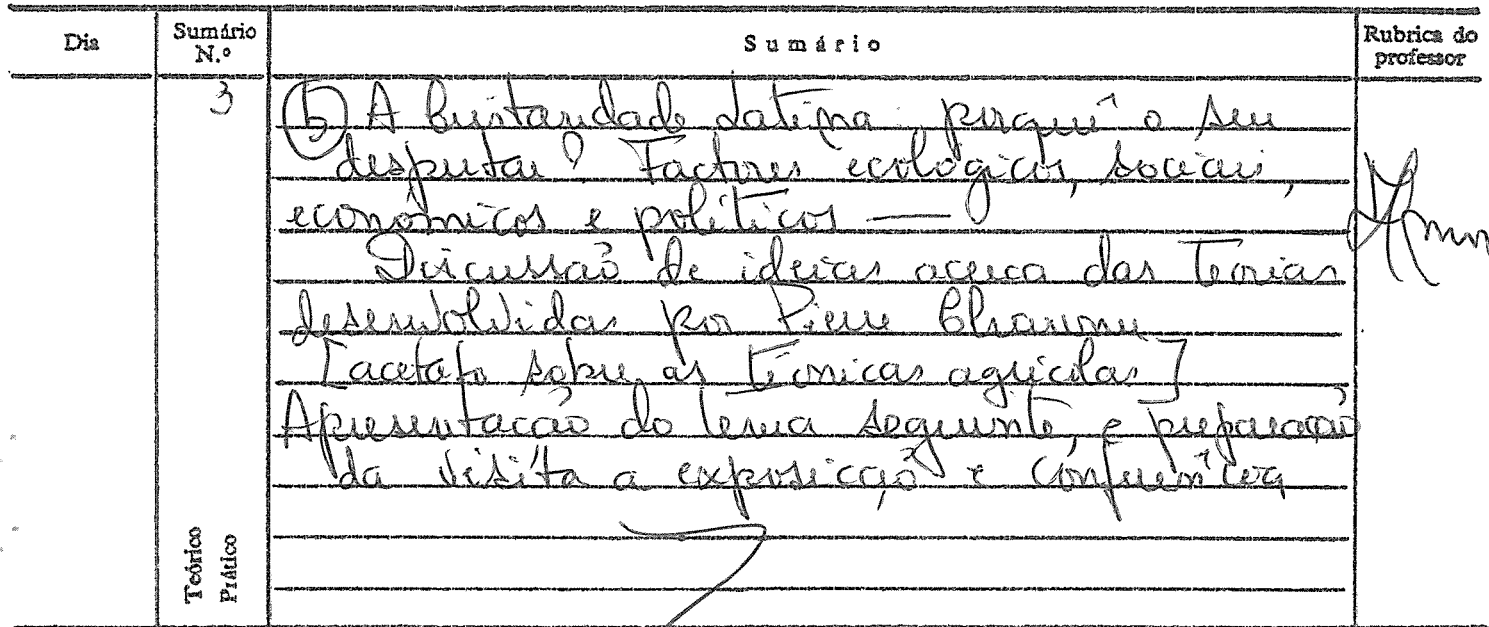 Dia
Sumário N.º
Sumário
Rubrica do professor
3
b) A Cristandade Latina, porquê o seu
despertar? Factores ecológicos, sociais,
económicos e políticos —
Discussão de ideias acerca das Teorias
desenvolvidas por Pierre Chaunu
[acetato sobre as técnicas agrícolas]
Apresentação do tema seguinte, e preparação
da visita a exposição e conferência
Teórico
Prático